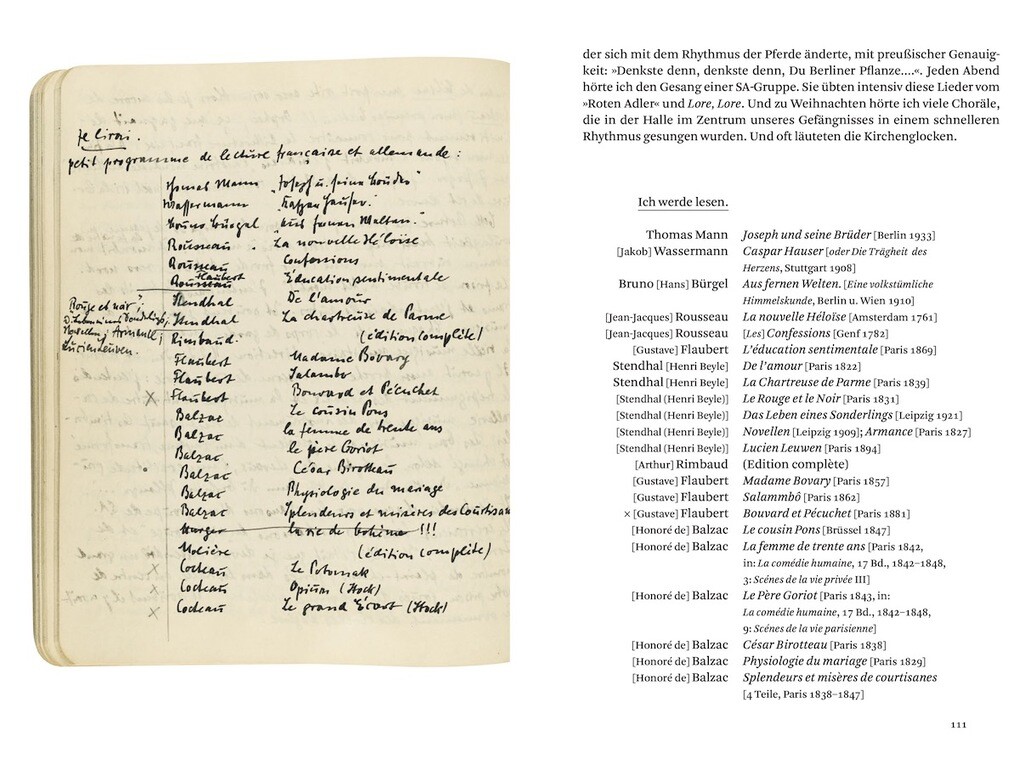 Je lirai.
petit programme de lecture française et allemande :
Thomas Mann „Joseph u. seine Brüder"
Wassermann „Caspar Hauser."
Bruno Bürgel „Aus fernen Welten."
Rousseau . La nouvelle Héloïse
Rousseau Confessions
Rousseau Flaubert Éducation sentimentale
Stendhal De l'amour
Rouge et noir ;
Stendhal La chartreuse de Parme
Novellen ; Armance ;
Lucien Leuwen.
Rimbaud. (édition complète)
Flaubert Madame Bovary
Flaubert Salambo
× Flaubert Bouvard et Pécuchet
Balzac Le cousin Pons
Balzac la femme de trente ans
Balzac le père Goriot
Balzac César Birotteau
Balzac Physiologie du mariage
Balzac Splendeurs et misères des Courtisan
Murger la vie de bohème !!!
Molière (édition complète)
× Cocteau Le Potomak
× Cocteau Opium (Stock)
× Cocteau Le grand Écart (Stock)
der sich mit dem Rhythmus der Pferde änderte, mit preußischer Genauig-
keit: »Denkste denn, denkste denn, Du Berliner Pflanze….«. Jeden Abend
hörte ich den Gesang einer SA-Gruppe. Sie übten intensiv diese Lieder vom
»Roten Adler« und Lore, Lore. Und zu Weihnachten hörte ich viele Choräle,
die in der Halle im Zentrum unseres Gefängnisses in einem schnelleren
Rhythmus gesungen wurden. Und oft läuteten die Kirchenglocken.
Ich werde lesen.
Thomas Mann Joseph und seine Brüder [Berlin 1933]
[Jakob] Wassermann Caspar Hauser [oder Die Trägheit des
Herzens, Stuttgart 1908]
Bruno [Hans] Bürgel Aus fernen Welten. [Eine volkstümliche
Himmelskunde, Berlin u. Wien 1910]
[Jean-Jacques] Rousseau La nouvelle Héloïse [Amsterdam 1761]
[Jean-Jacques] Rousseau [Les] Confessions [Genf 1782]
[Gustave] Flaubert L'éducation sentimentale [Paris 1869]
Stendhal [Henri Beyle] De l'amour [Paris 1822]
Stendhal [Henri Beyle] La Chartreuse de Parme [Paris 1839]
[Stendhal (Henri Beyle)] Le Rouge et le Noir [Paris 1831]
[Stendhal (Henri Beyle)] Das Leben eines Sonderlings [Leipzig 1921]
[Stendhal (Henri Beyle)] Novellen [Leipzig 1909]; Armance [Paris 1827]
[Stendhal (Henri Beyle)] Lucien Leuwen [Paris 1894]
[Arthur] Rimbaud (Edition complète)
[Gustave] Flaubert Madame Bovary [Paris 1857]
[Gustave] Flaubert Salammbô [Paris 1862]
× [Gustave] Flaubert Bouvard et Pécuchet [Paris 1881]
[Honoré de] Balzac Le cousin Pons [Brüssel 1847]
[Honoré de] Balzac La femme de trente ans [Paris 1842,
in: La comédie humaine, 17 Bd., 1842–1848,
3: Scénes de la vie privée III]
[Honoré de] Balzac Le Père Goriot [Paris 1843, in:
La comédie humaine, 17 Bd., 1842–1848,
9: Scénes de la vie parisienne]
[Honoré de] Balzac César Birotteau [Paris 1838]
[Honoré de] Balzac Physiologie du mariage [Paris 1829]
[Honoré de] Balzac Splendeurs et misères de courtisanes
[4 Teile, Paris 1838–1847]
111